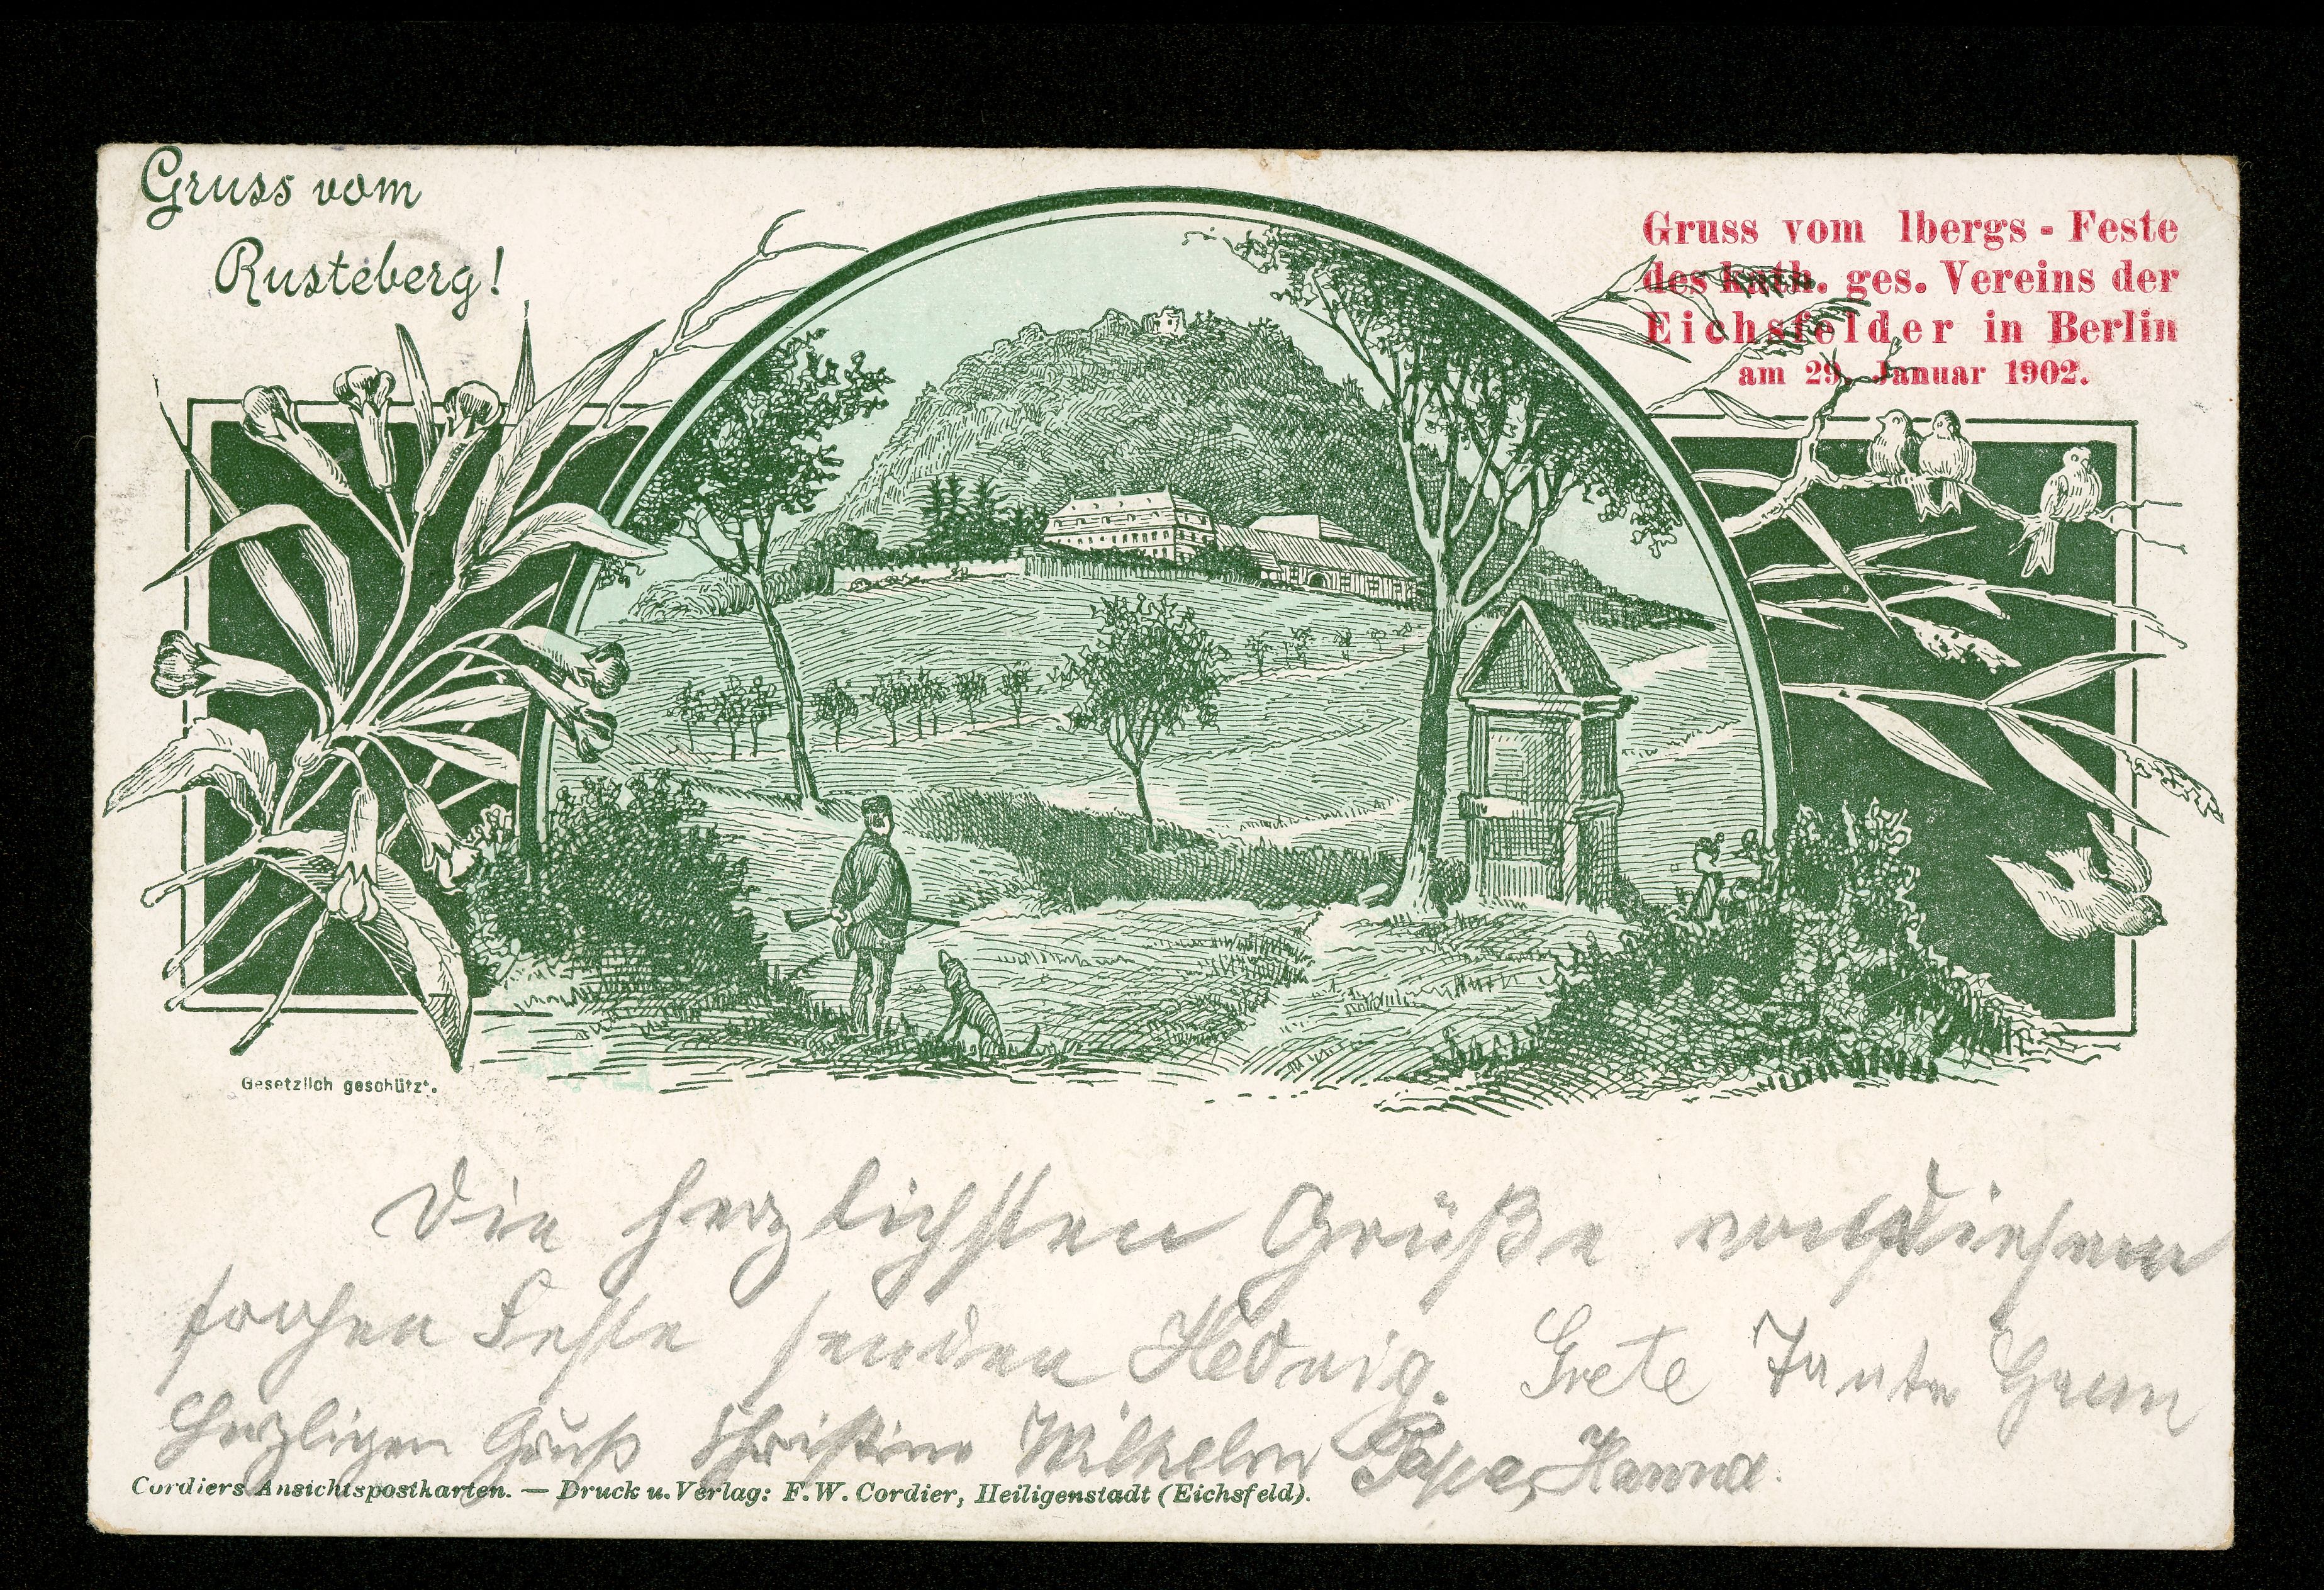 Gruss vom
Rusteberg!
Gruss vom Ibergs-Feste
des kath. ges. Vereins der
Eichsfelder in Berlin
am 29. Januar 1902.
Gesetzlich geschützt.
Die herzlichsten Grüße von diesem
frohen Feste senden Hedwig. Grete Tante
Herzligen Gruß Christine Wilhelm Papa, Hanna.
Cordiers Ansichtspostkarten. — Druck u. Verlag: F. W. Cordier, Heiligenstadt (Eichsfeld).